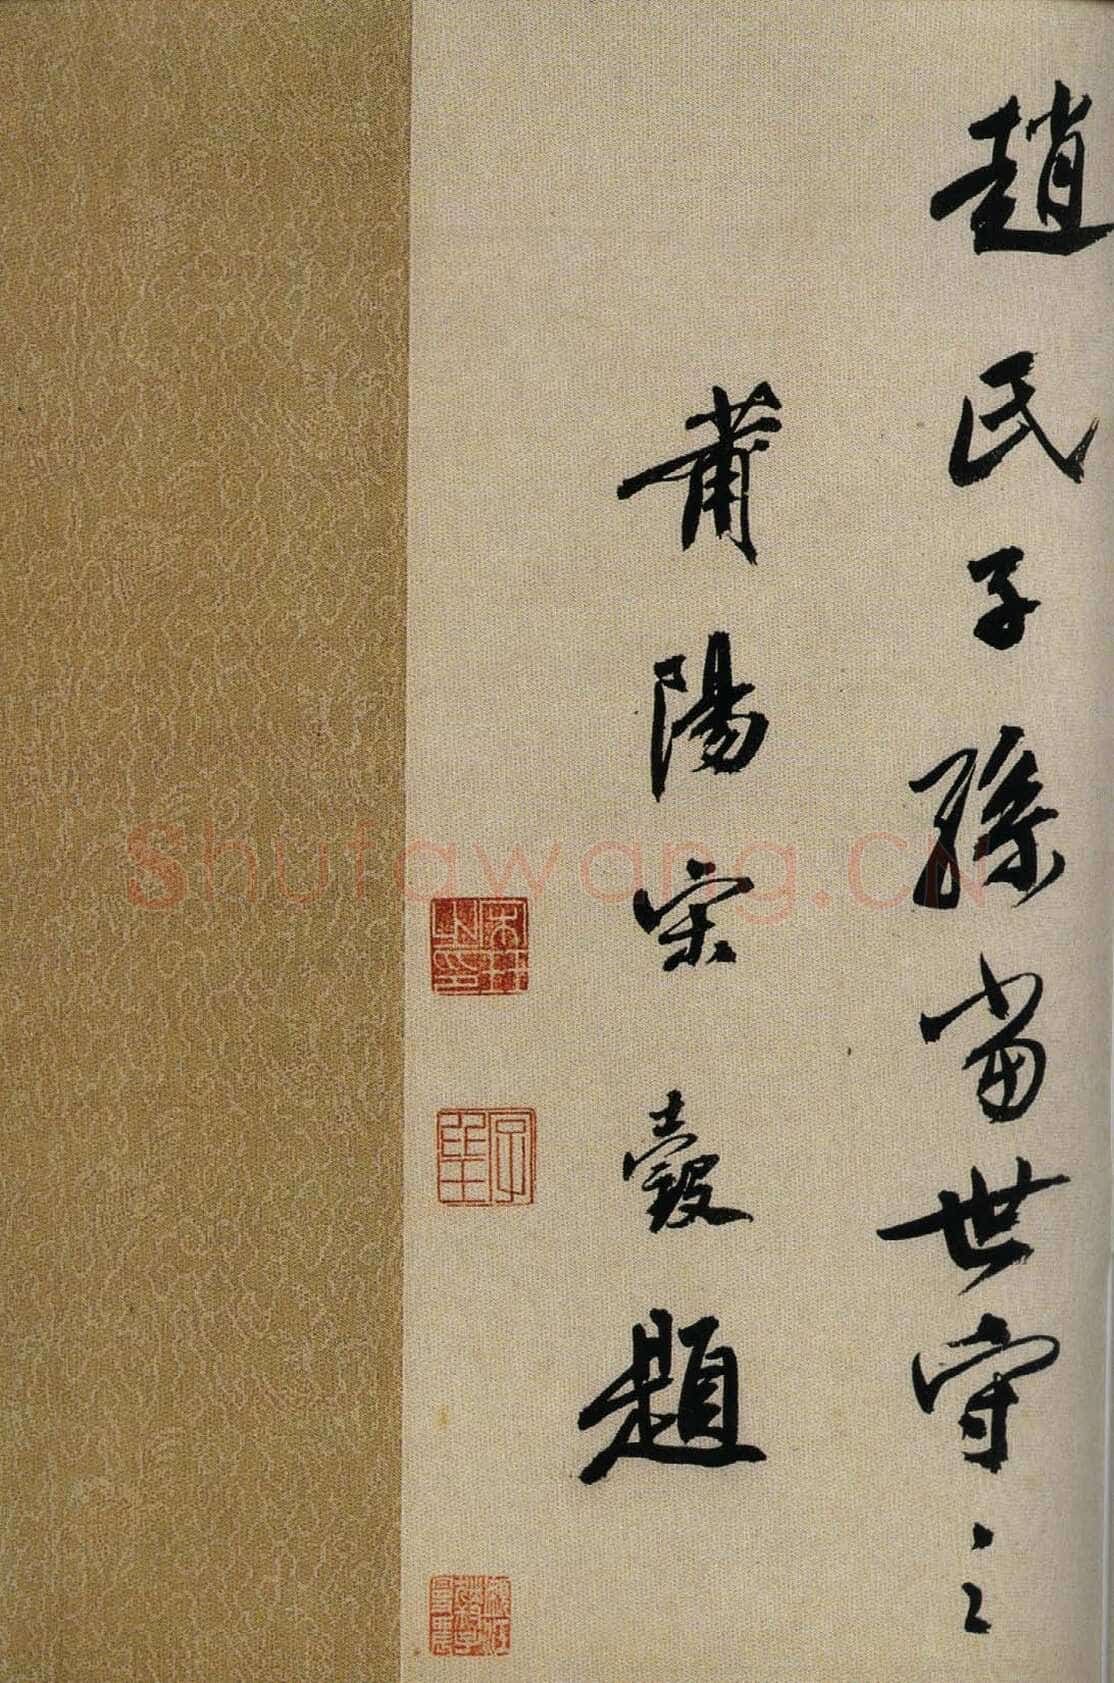 趙氏子孫當世守之
莆陽宋瑴題
Shufawang.CN